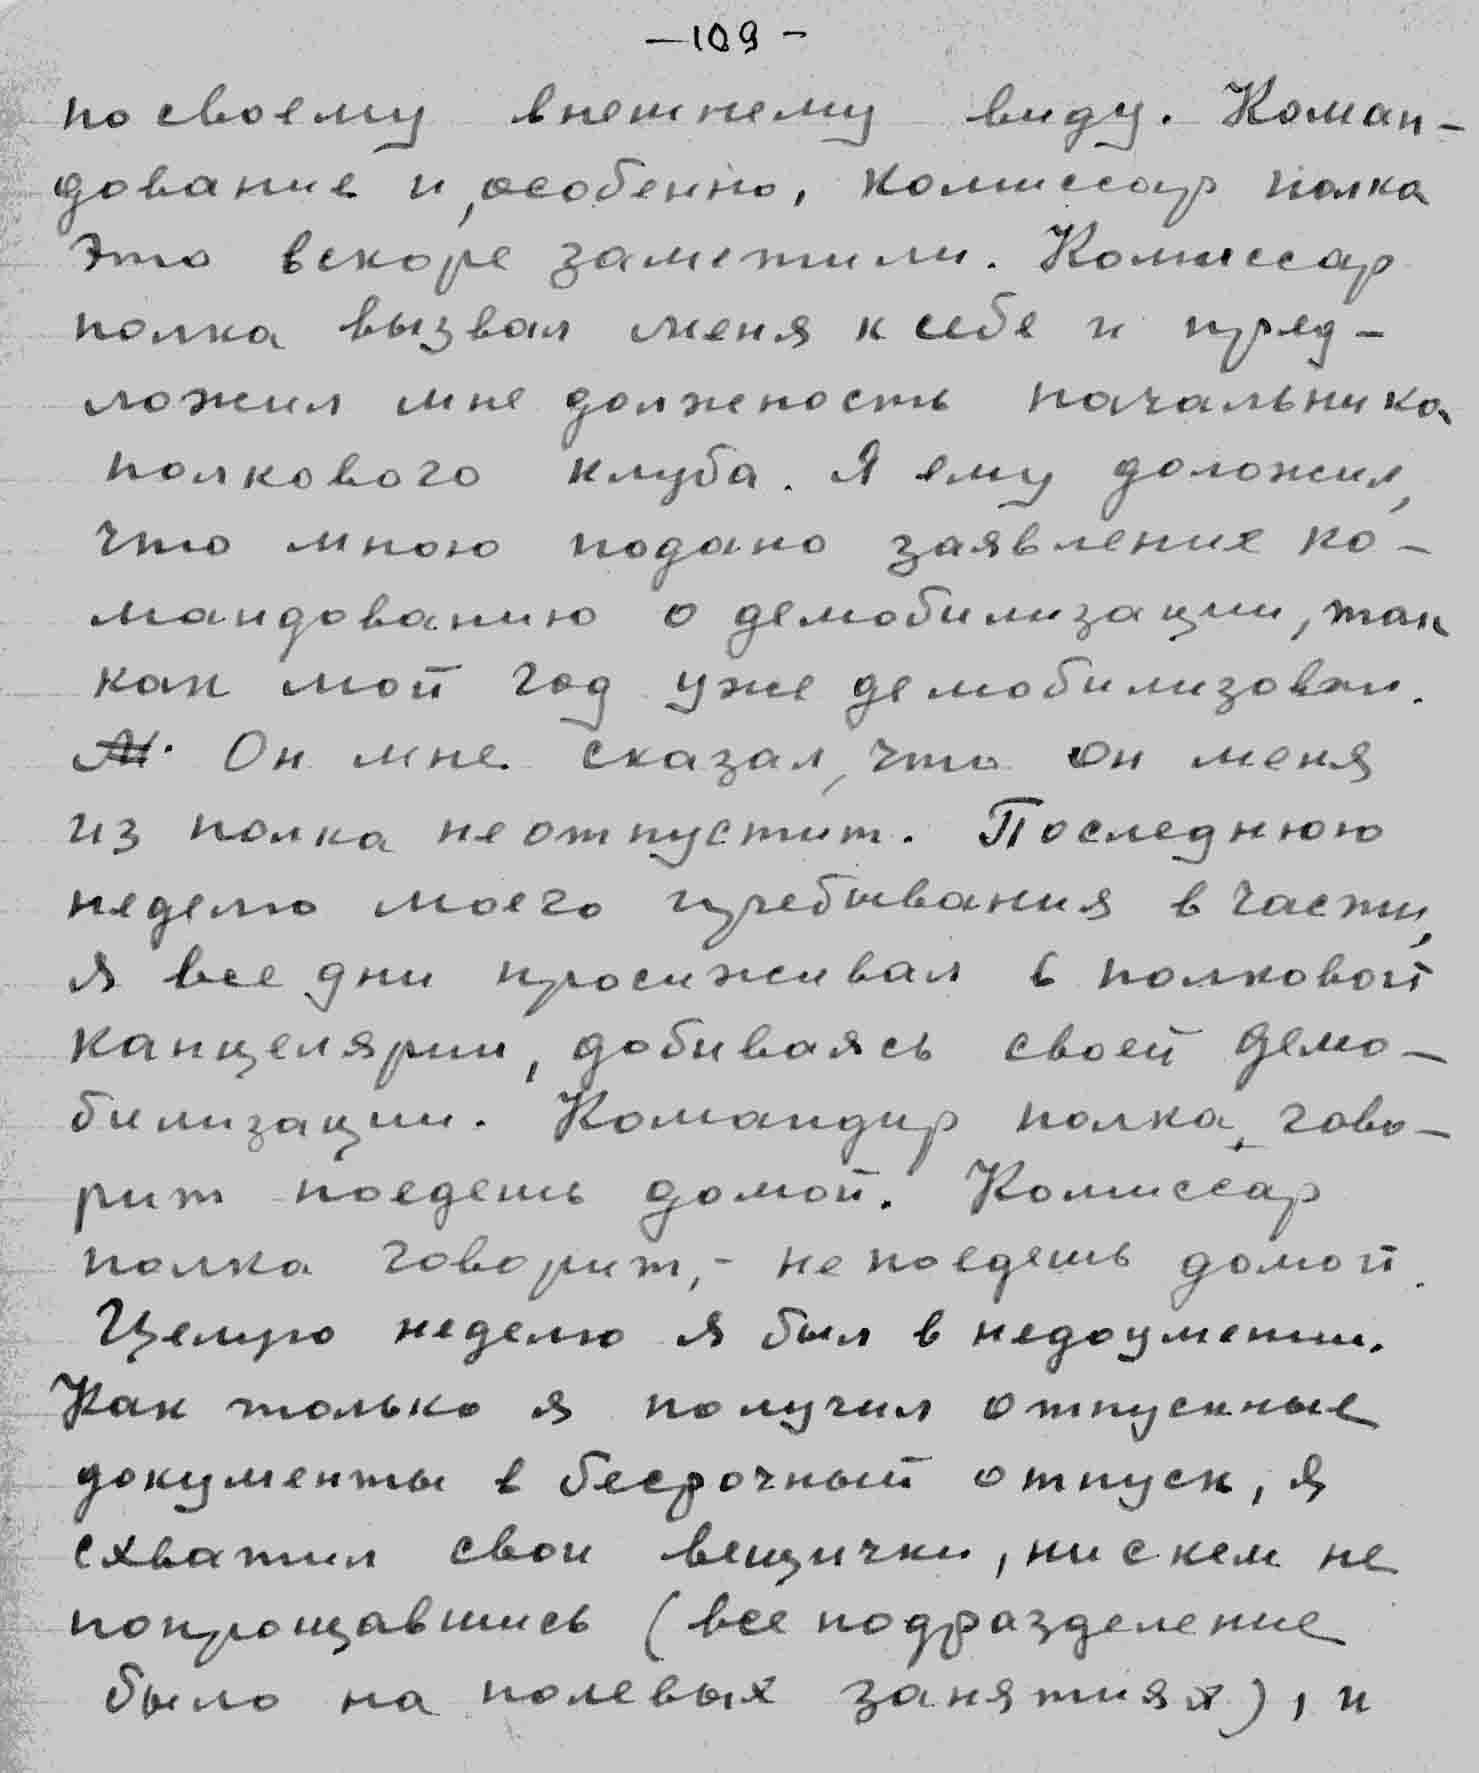 —109-
по своему внешнему виду. Коман-
дование и, особенно, комиссар полка
это вскоре заметили. Комиссар
полка вызвал меня к себе и пред-
ложил мне должность начальника
полкового клуба. Я ему доложил,
что мною подано заявление ко-
мандованию о демобилизации, так
как мой год уже демобилизован.
Он мне сказал, что он меня
из полка не отпустит. Последнюю
неделю моего пребывания в части,
я все дни просиживал в полковой
канцелярии, добиваясь своей демо-
билизации. Командир полка, гово-
рит поедешь домой. Комиссар
полка говорит,- не поедешь домой.
Целую неделю я был в недоумении.
Как только я получил отпускные
документы в бесрочный отпуск, я
схватил свои вещички, ни с кем не
попрощавшись (все подразделение
было на полевых занятиях), и